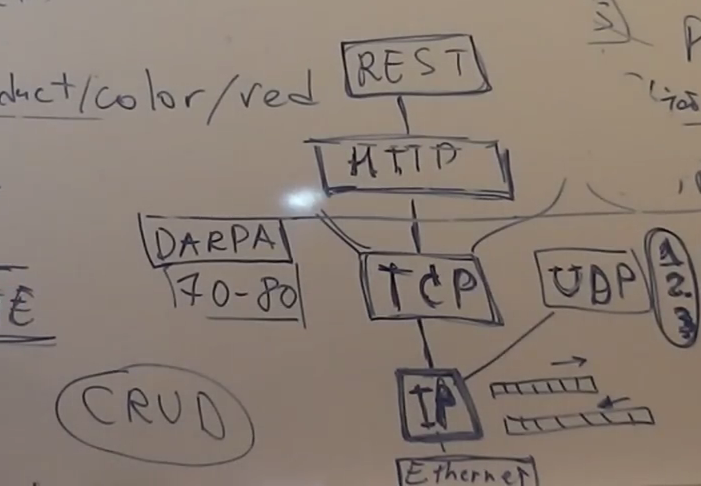 REST
duct/color/red
HTTP
DARPA
70-80
TCP
UDP
1
2.
3
E
CRUD
IP
Ethernet